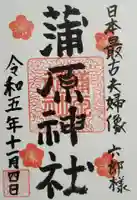 日本最古夫婦像
六郎様
蒲原神社
令和五年十一月四日